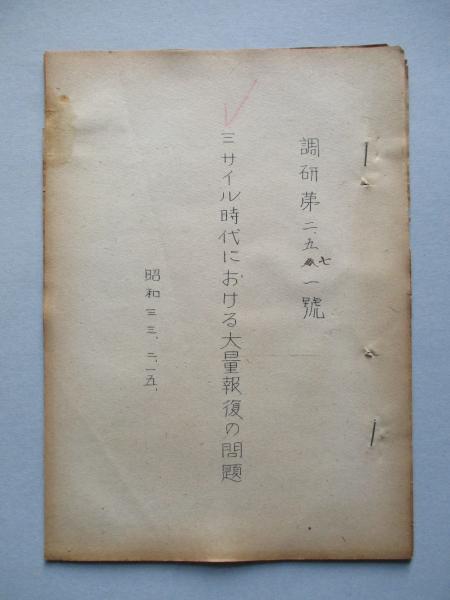 調研第二、五七一號
ミサイル時代における大量報復の問題
昭和三三、二、一五、